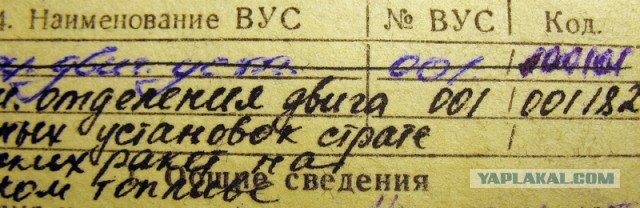 4. Наименование ВУС № ВУС Код.
двиг. уста. 001
отделения двига 001 001182
ных установок страте
ких ракет на
ком топливе
Общие сведения
YAPLAKAL.COM